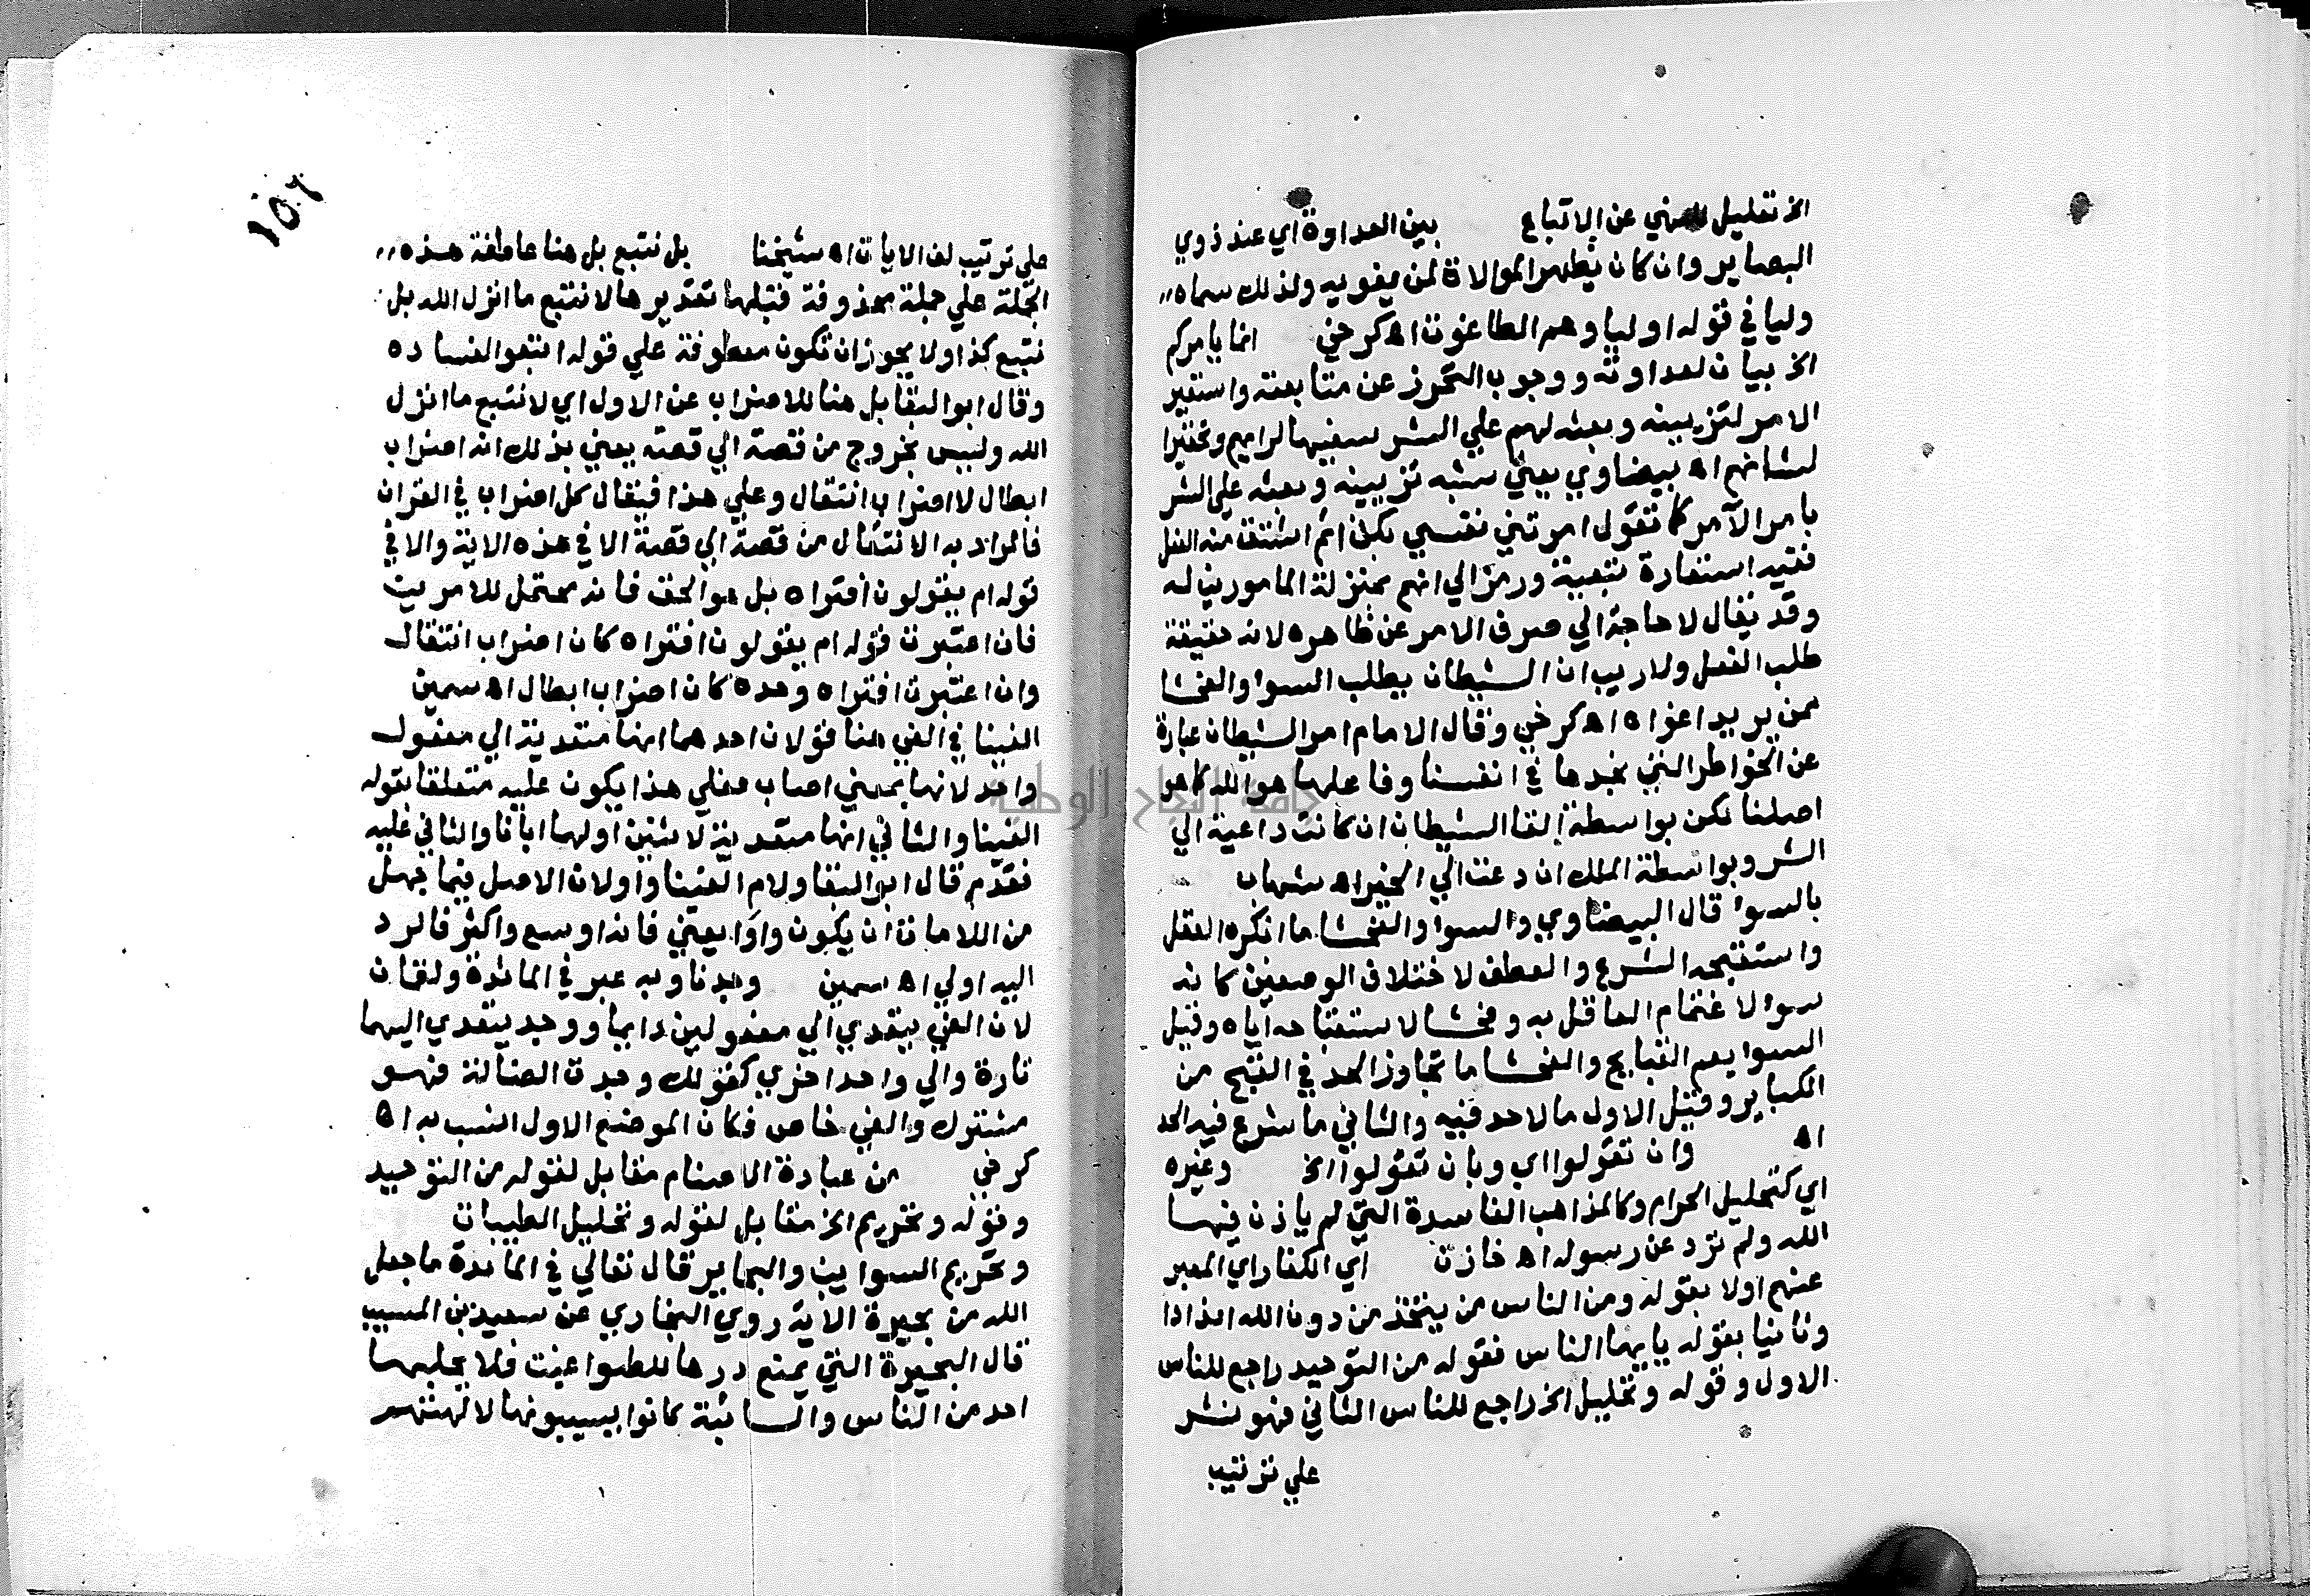 الخ تعليل للنهي عن الاتباع بين العداوة اي عند ذوي
البصاير وان كان يظهر الموالاة لمن يغويه ولذلك سماه
وليا في قوله اوليا وهم الطاغوت اه كرخي انما يامركم
الخ بيان لعداوته ووجوب التحرز عن متابعته واستعير
الامر لتزيينه وبعثه لهم علي الشر تسفيها لرايهم وتحقيرا
لشانهم اه بيضاوي يعني شبه تزيينه وبعثه علي الشر
بامر الآمر كما تقول امرتني نفسي بكذا ثم اشتق منه الفعل
ففيه استعارة تبعية ورمز الي انهم بمنزلة المامورين له
وقد يقال لا حاجة الي صرف الامر عن ظاهره لانه حقيقة
طلب الفعل ولا ريب ان الشيطان يطلب السوا والفحشا
ممن يريد اغواه اه كرخي وقال الامام امر الشيطان عبارة
عن الخواطر التي نجدها في انفسنا وفاعلها هو الله كما هو
اصلنا لكن بواسطة القا الشيطان ان كانت داعية الي
الشر وبواسطة الملك ان دعت الي الخير اه شهاب
بالسوا قال البيضاوي والسوا والفحشا ما انكره العقل
واستقبحه الشرع والعطف لاختلاف الوصفين كانه
سوا لاغتمام العاقل به وفحشا لاستقباحه اياه وقيل
السوا يعم القبايح والفحشا ما تجاوز الحد في القبح من
الكباير وقيل الاول ما لا حد فيه والثاني ما شرع فيه الحد
اه وان تقولوا اي وبان تقولوا الخ وغيره
اي كتحليل الحرام وكالمذاهب الفاسدة التي لم ياذن فيها
الله ولم ترد عن رسوله اه خازن اي الكفار اي المعبر
عنهم اولا بقوله ومن الناس من يتخذ من دون الله اندادا
وثانيا بقوله يايها الناس فقوله من التوحيد راجع للناس
الاول وقوله وتحليل الخ راجع للناس الثاني فهو نشر
علي ترتيب
١٥٦
علي ترتيب لف الايات اه شيخنا بل نتبع بل هنا عاطفة هذه
الجملة علي جملة محذوفة قبلها تقديرها لا نتبع ما انزل الله بل
نتبع كذا ولا يجوز ان تكون معطوفة علي قوله اتبعوا لفساده
وقال ابو البقا بل هنا للاضراب عن الاول اي لا نتبع ما انزل
الله وليس بخروج من قصة الي قصة يعني بذلك انه اضراب
ابطال لا اضراب انتقال وعلي هذا فيقال كل اضراب في القران
فالمراد به الانتقال من قصة الي قصة الا في هذه الاية والا في
قوله ام يقولون افتراه بل هو الحق فانه محتمل للامرين
فان اعتبرت قوله ام يقولون افتراه كان اضراب انتقال
وان اعتبرت افتراه وحده كان اضراب ابطال اه سمين
الفينا في الفي هنا قولان احدهما انها متعدية الي مفعول
واحد لانها بمعني اصاب فعلي هذا يكون عليه متعلقا بقوله
الفينا والثاني انها متعدية لاثنين اولهما ابانا والثاني عليه
فقدم قال ابو البقا ولام الفينا واو لان الاصل فيما جهل
من اللامات ان يكون واوا يعني فانه اوسع واكثر فالرد
اليه اولي اه سمين وجدنا وبه عبر في المائدة ولقمان
لان الفي يتعدي الي مفعولين دايما ووجد يتعدي اليهما
تارة والي واحد اخري كقولك وجدت الضالة فهو
مشترك والفي خاص فكان الموضع الاول انسب به اه
كرخي من عبادة الاصنام مقابل لقوله من التوحيد
وقوله وتحريم الخ مقابل لقوله وتحليل الطيبات
وتحريم السوايب والبحاير قال تعالي في المائدة ما جعل
الله من بحيرة الاية روي البخاري عن سعيد بن المسيب
قال البحيرة التي يمنع درها للطواغيت فلا يحلبها
احد من الناس والسائبة كانوا يسيبونها لالهتهم
جامعة النجاح الوطنية